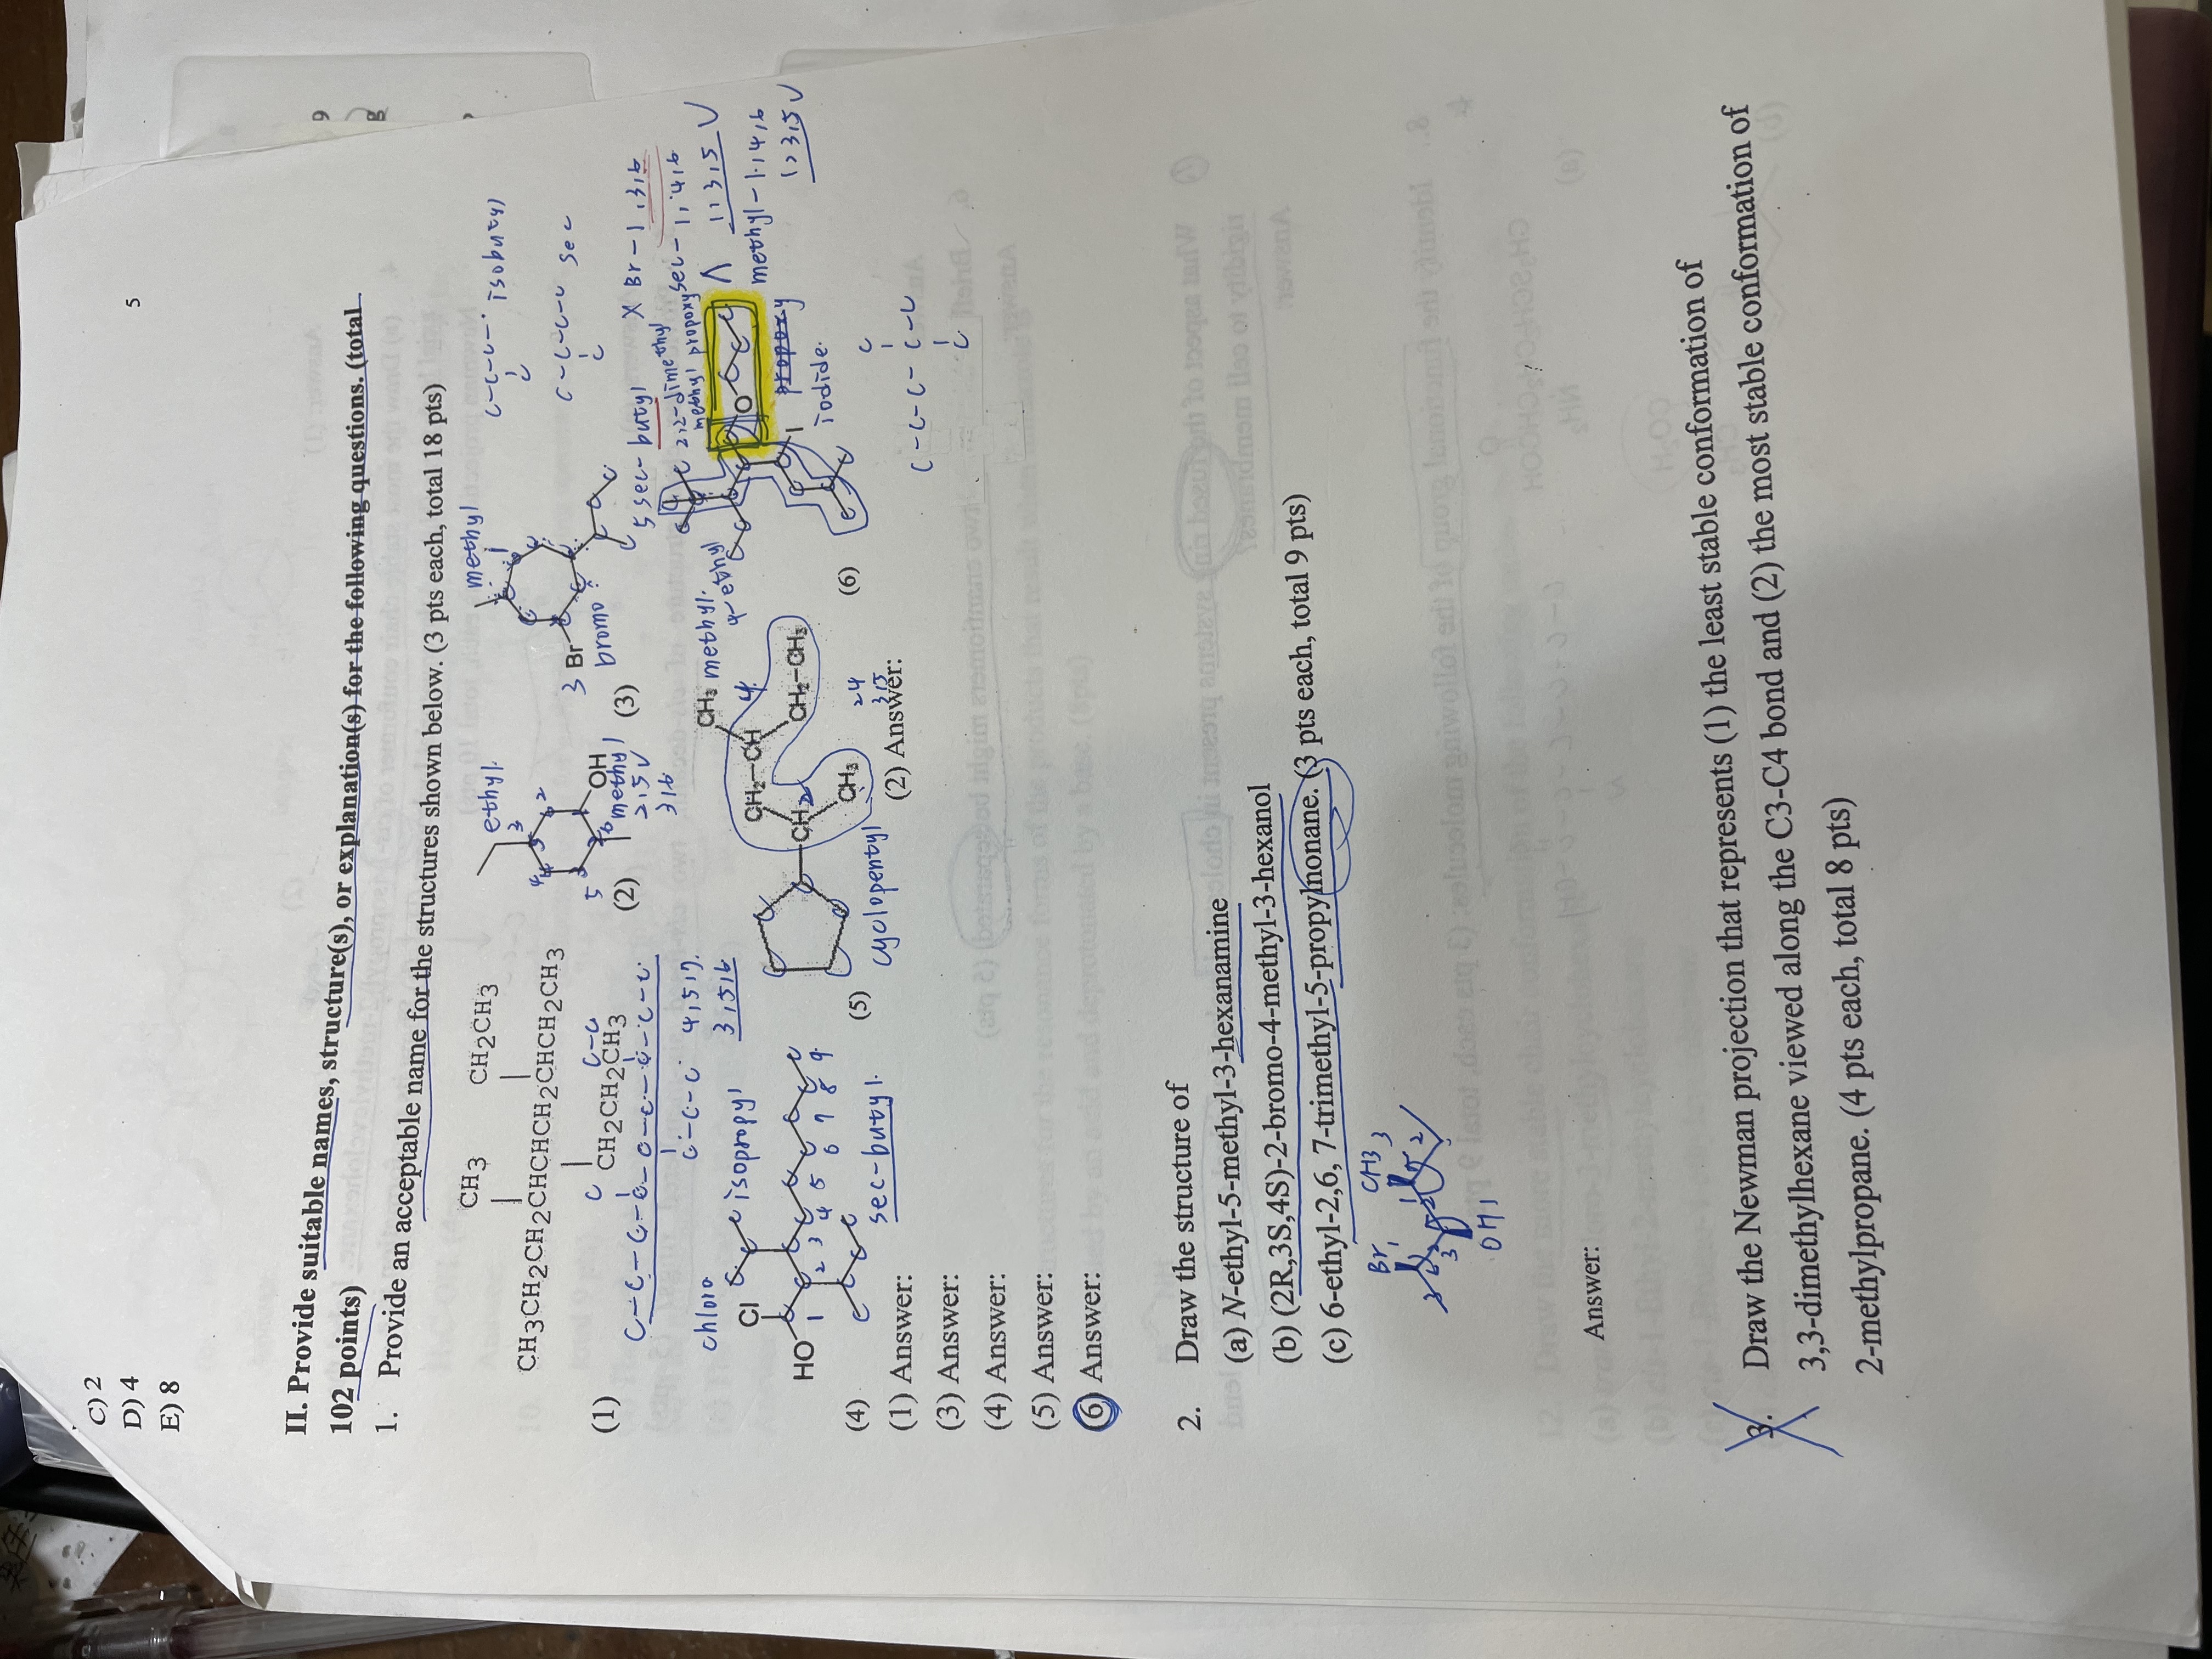 C) 2
D) 4
E) 8
5
II. Provide suitable names, structure(s), or explanation(s) for the following questions. (total
102 points)
1. Provide an acceptable name for the structures shown below. (3 pts each, total 18 pts)
CH3
CH2CH3
CH3CH2CH2CHCHCH2CHCH2CH3
CH2CH2CH3
(1)
C
C-C
C-C-C-C-C-C-C-C-C
C-C-C 4,5,7.
3,5,6
ethyl.
OH
methyl
(2)
2,5 V
3,6
methyl
3 Br
bromo
(3)
5 sec-butyl
C-C-C- isobutyl
C
C-C-C-C sec
C
X Br-1,3,6
sec-1,4,6
1,3,5 V
methyl-1,4,6
1,3,5 V
chloro
Cl
isopropyl
HO
1 2 3 4 5 6 7 8 9
(4)
sec-butyl.
CH3 methyl.
CH2-CH 4
CH 2
CH2-CH3
CH3
(5)
cyclopentyl
24
35
2,2-dimethyl
methyl propoxy
4-ethyl
O
propoxy
I
iodide.
(6)
C
C-C-C-C-C
C
(1) Answer:
(2) Answer:
(3) Answer:
(4) Answer:
(5) Answer:
(6) Answer:
2. Draw the structure of
(a) N-ethyl-5-methyl-3-hexanamine
(b) (2R,3S,4S)-2-bromo-4-methyl-3-hexanol
(c) 6-ethyl-2,6, 7-trimethyl-5-propylnonane. (3 pts each, total 9 pts)
Br 1
CH3 3
OH 1
Answer:
3. Draw the Newman projection that represents (1) the least stable conformation of
3,3-dimethylhexane viewed along the C3-C4 bond and (2) the most stable conformation of
2-methylpropane. (4 pts each, total 8 pts)